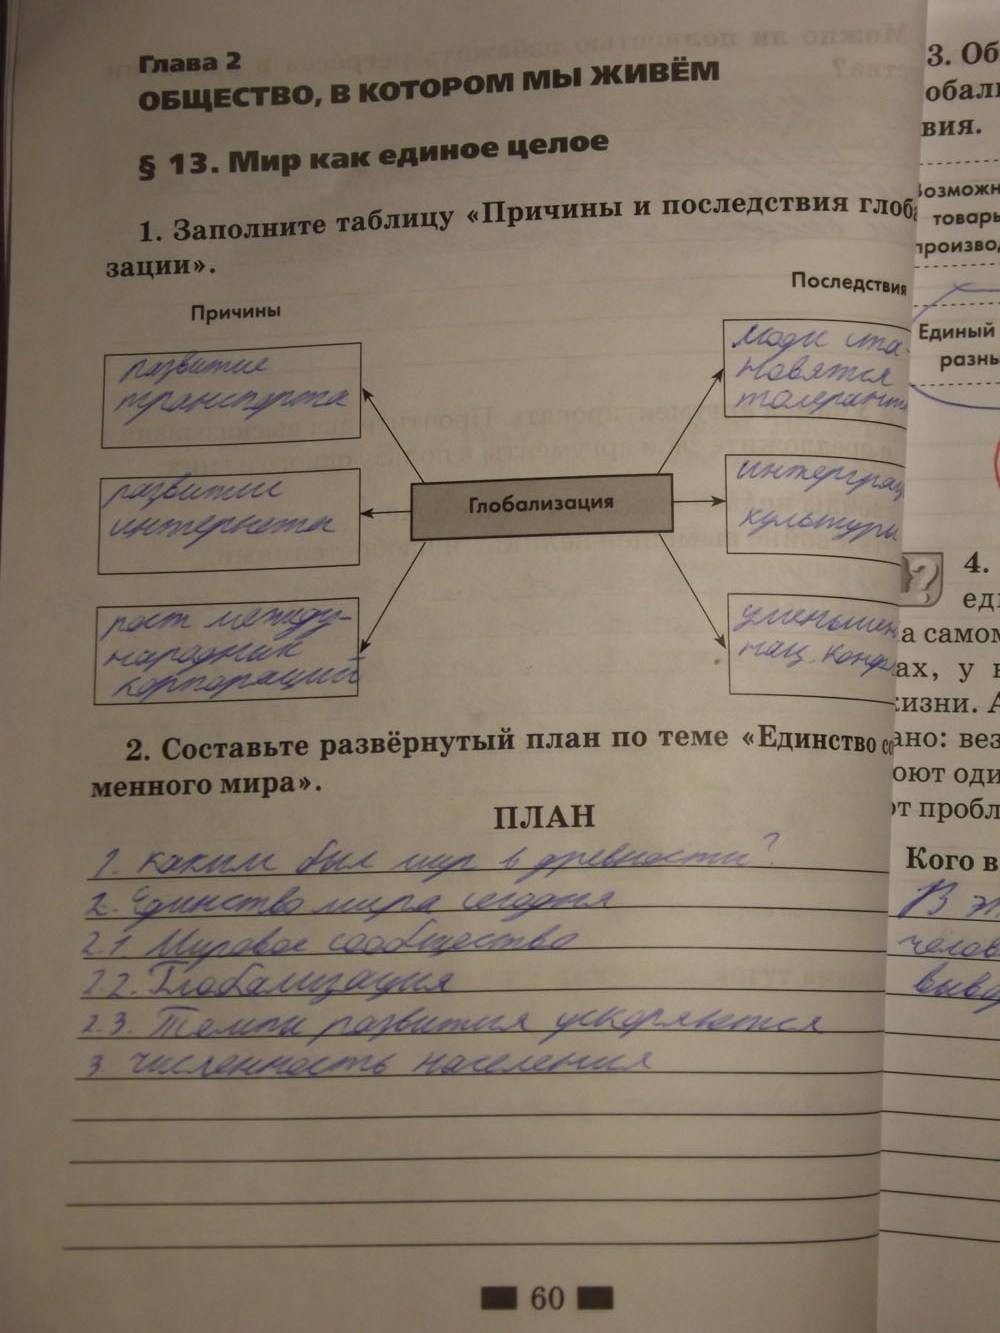 Глава 2
ОБЩЕСТВО, В КОТОРОМ МЫ ЖИВЁМ
§ 13. Мир как единое целое
1. Заполните таблицу «Причины и последствия глоба
зации».
Причины
Последствия
развитие
транспорта
развитие
интернета
рост между-
народних
корпораций
Глобализация
люди ста-
новятся
толерантн
интерграц
культуры
уменьшен
нац. конф
2. Составьте развёрнутый план по теме «Единство со
менного мира».
ПЛАН
1. каким был мир в древности?
2. Единство мира сегодня
2.1. Мировое сообщество
2.2. Глобализация
2.3. Темпы развития ускоряются
3. численность населения
60
3. Об
обали
вия.
Возможн
товары
произво
Единый
разны
4.
еди
а самом
ах, у н
жизни. А
ано: вез
оют оди
от пробл
Кого в
В эт
челов
выви